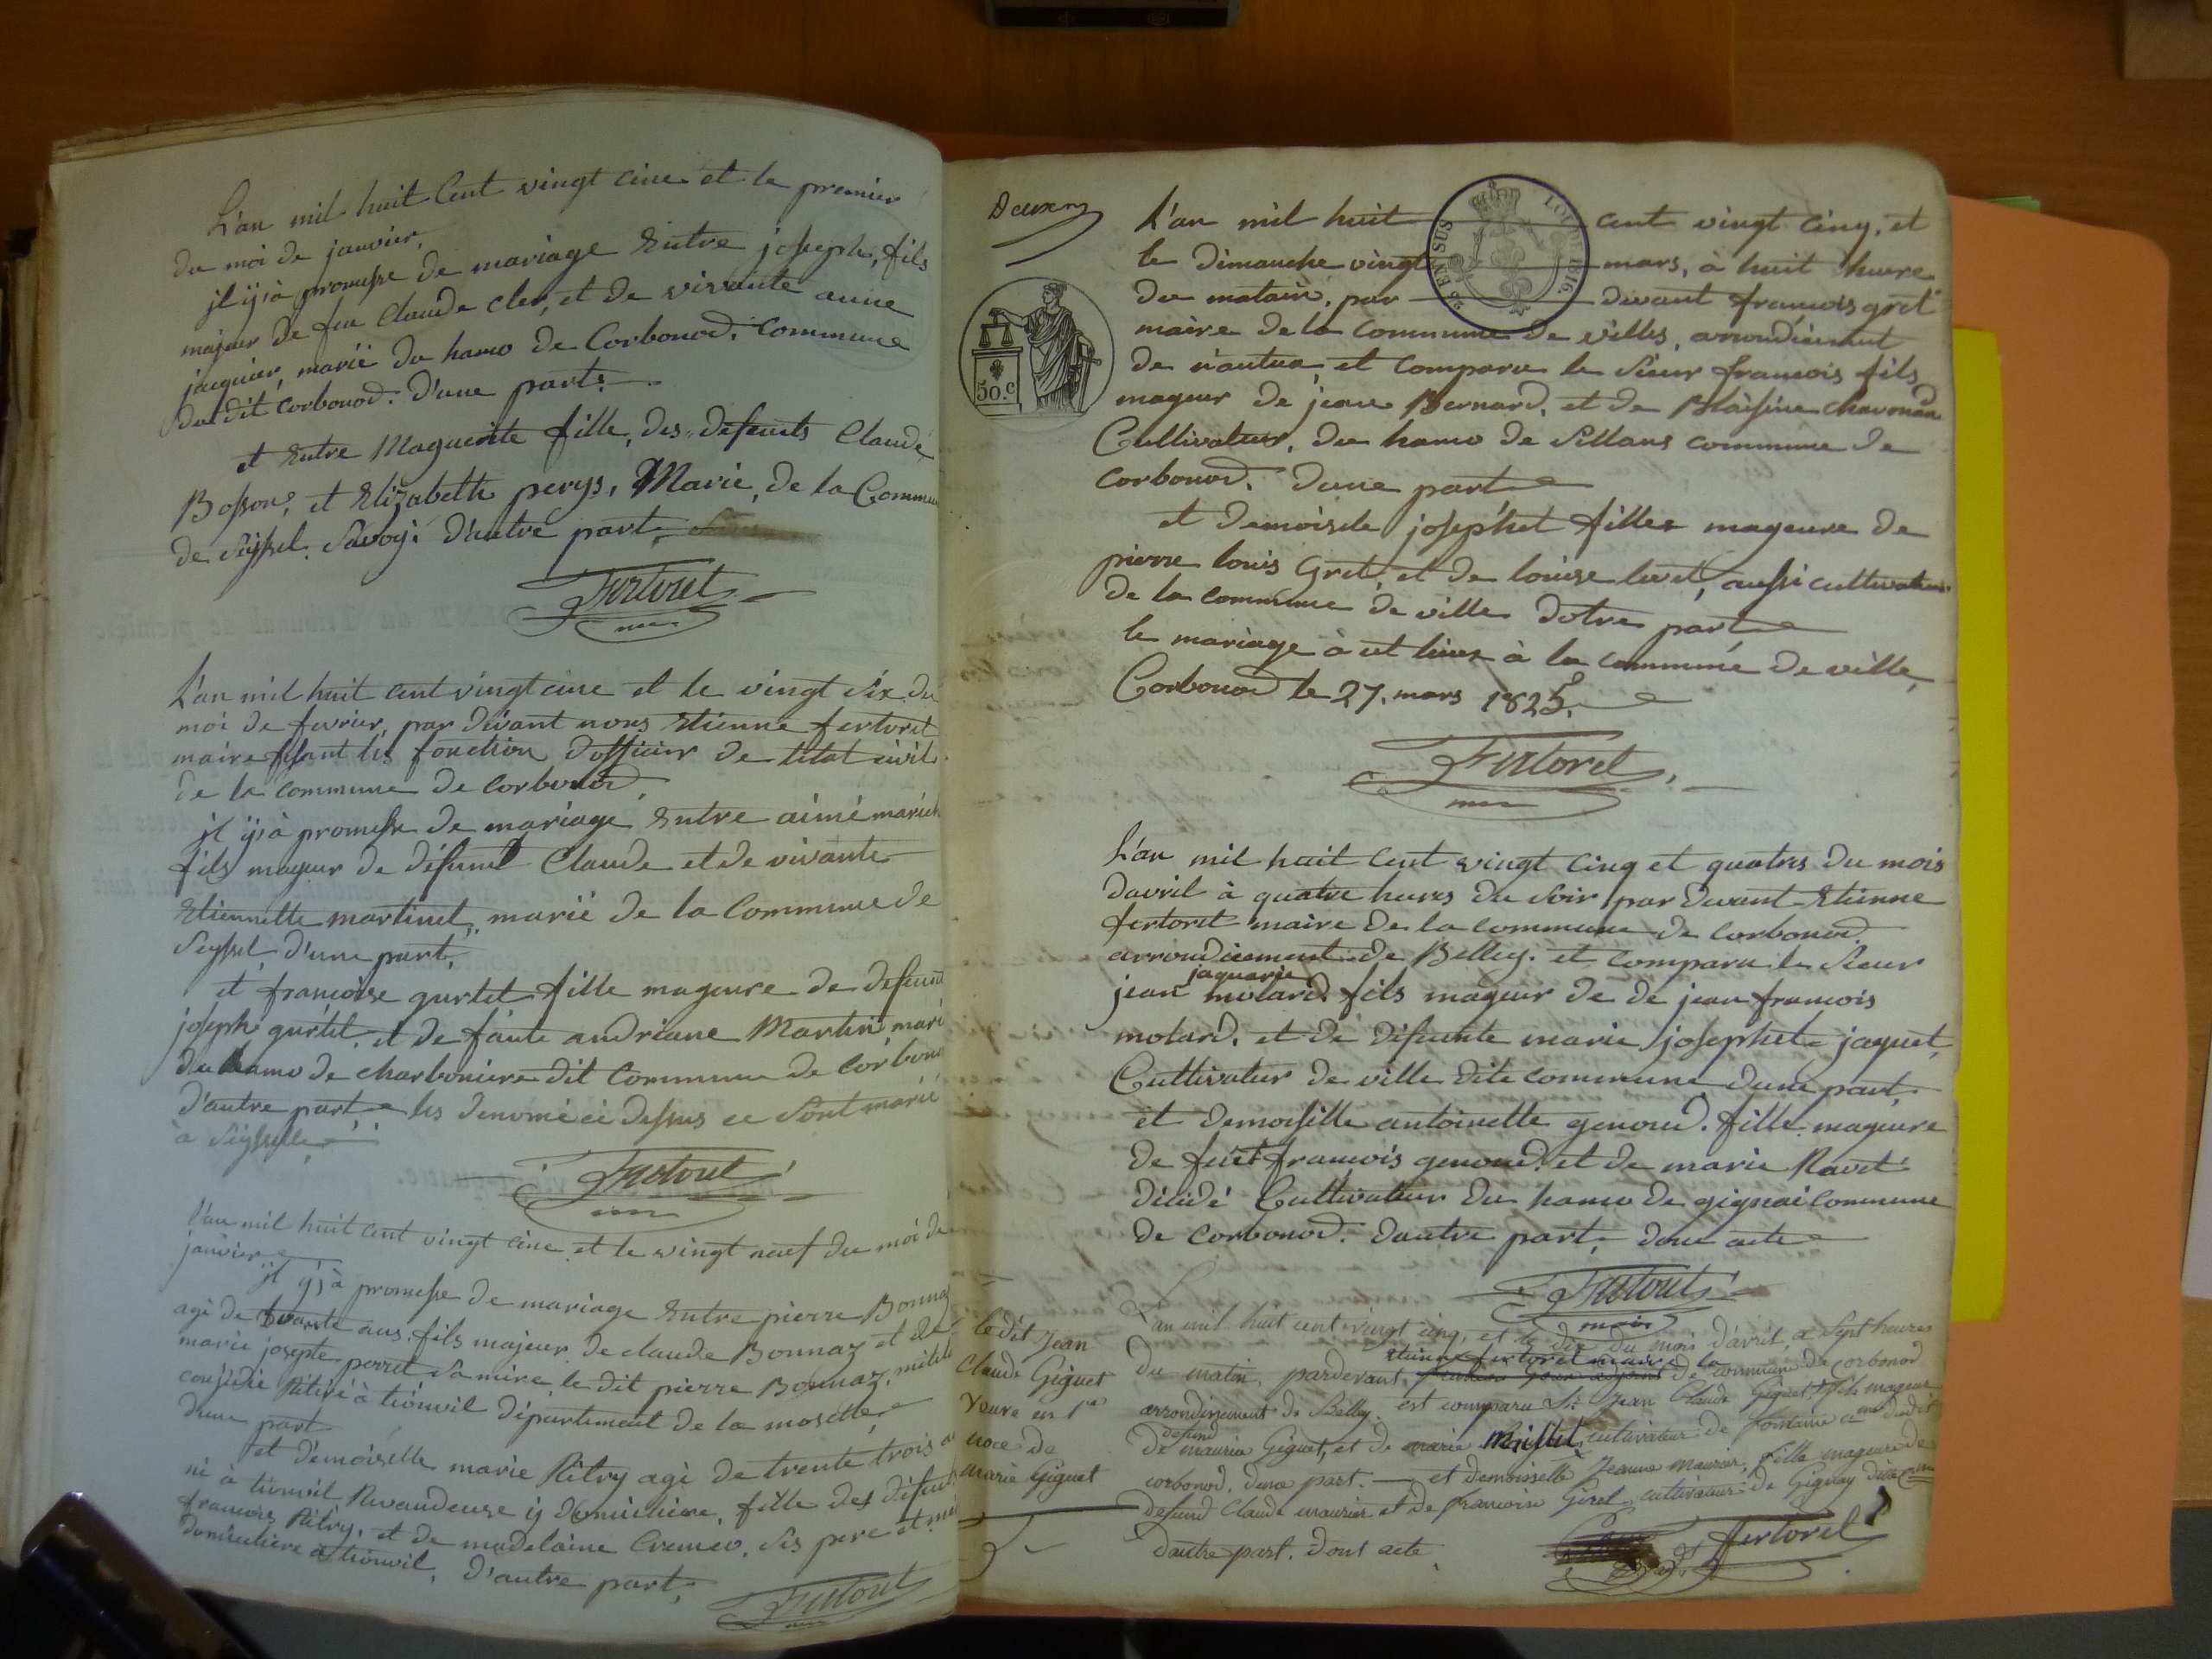 L'an mil huit Cent vingt cinc et le premier
du moi de janvier,
jl y à promesse de mariage Entre joseph, fils
majeur de feu Claude cler, et de vivante anne
jacquier, marié du hamo de Corbonod, Commune
du dit Corbonod. D'une part.
et Entre Maguerite fille, des defeunts Claude
Bosson, et Elizabeth perys, Marié, de la Commune
de Seyssel. Savoy. D'autre part.
Fertoret
L'an mil huit cent vingt cinc et le vingt six du
moi de fevrier, par devant nous Etienne fertoret
maire fesant les fonction d'officier de létat civil
de la commune de Corbonod,
jl y à promesse de mariage Entre aimé
fils mageur de défunt Claude et de vivante
Etiennette martinet, marié de la Commune de
Seyssel d'une part,
et francoise gurtet fille mageure de defeunt
joseph gurtet, et de fante andriane Martin,
du hamo de charboniere dit Commune de Corbono
d'autre part les denomé ci dessus ce sont marié
à Seysselle
Fertoret
l'an mil huit cent vingt cinc et le vingt neuf du moi de
janvier
jl y à promesse de mariage Entre pierre Bonnaz
agé de ans, fils majeur de claude Bonnaz et de
marie josepte perret sa mère, le dit pierre Bonnaz,
conjédié Rétiré à tionvil département de la moselle,
dune part
et D'emoiselle marie Rétry agé de trente trois
né à tionvil Revandeuse y domiciliere, fille des
francois Rétry, et de madelaine Cremer, Ses pere et
domicilière à tionvil, D'autre part,
Fertoret
Deux
50.C
LOI DE 1816.
L'an mil huit cent vingt cinq, et
le dimanche vingt mars, à huit heure
du matain, par devant francois gret
maire de la Commune de villes, arrondiement
de nantua, et Comparu le Sieur francois fils
mageur de jean Bernard, et de Blaisine
Cultivateur, du hamo de Sillans commune de
Corbonod, dune part
et Demoisele josephet filles mageure de
pierre louis Gret, et de louise
de la commune de ville dotre part
le mariage à ut lieux à la commune de ville,
Corbonod le 27. mars 1825.
Fertoret
L'an mil huit Cent vingt cinq et quatres du mois
davril à quatre heures du Soir par devant Etienne
fertoret maire de la commune de Corbonod.
arrondiciement de Belley. et Comparu le Sieur
jaquarie
jean molard fils mageur de de jean francois
molard, et de défeunte marie josephet jaquet,
Cultivateur de ville dite commune dune part,
et demoisille antoinette genoud. fille mageure
de feu francois genoud et de marie Ravet
décédé Cultivateur du hamo de gignai commune
de Corbonod. dautre part, donc acte
Fertoret
ledit jean
Claude Giguet
Veuve en 1re
noce de
Marie Giguet
L'an mil huit cent vingt cinq, et le dix du mois d'avril, à Sept heures
Etienne fertoret maire
du matin, pardevant de la commune de corbonod
arrondissement de Belley. est comparu Sr. Jean Claude Giguet, fils mageur
defund
de mauria Giguet, et de marie cultivateur de fontaine
corbonod, dune part. et demoisselle Jeanne maurier, fille mageure de
defund Claude maurier et de francoise Girel cultivateurs de Gignay dite
dautre part. dont acte
Fertoret